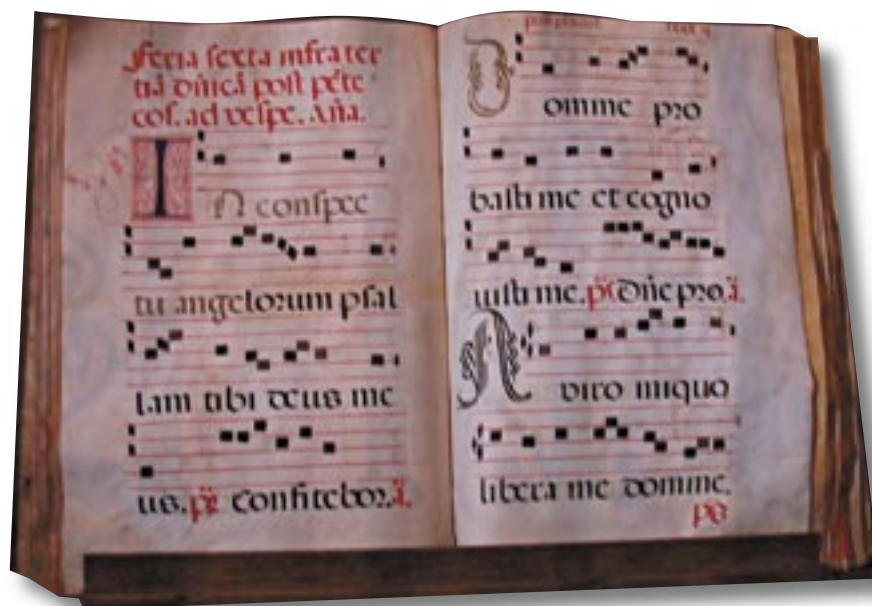 feria sexta infra ter
tiā dn̄icā post pēte
cos. ad vespe. Aña.
In conspec
tu angelorum psal
lam tibi deus me
us. ps̄. Confitebor. ā.
Domine pro
basti me et cogno
uisti me. ps̄. Dn̄e pro. ā.
A viro iniquo
libera me domine.
ps̄